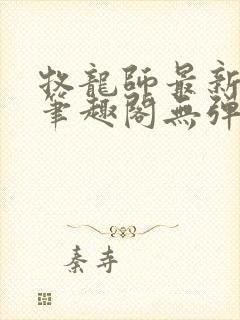 牧龍師最新
筆趣閣無彈
秦寺